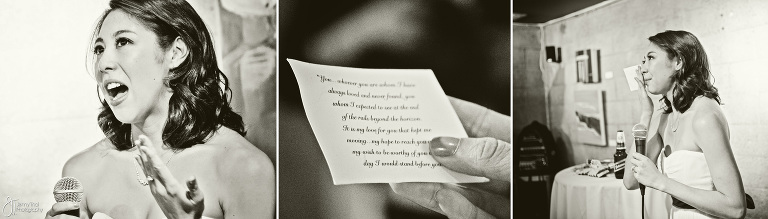 "You... whoever you are whom I have
always loved and never found, you
whom I expected to see at the end
of the rails beyond the horizon.
It is my love for you that kept me
moving... my hope to reach you
my wish to be worthy of you
day I would stand before you
Jenny Trol
Photography